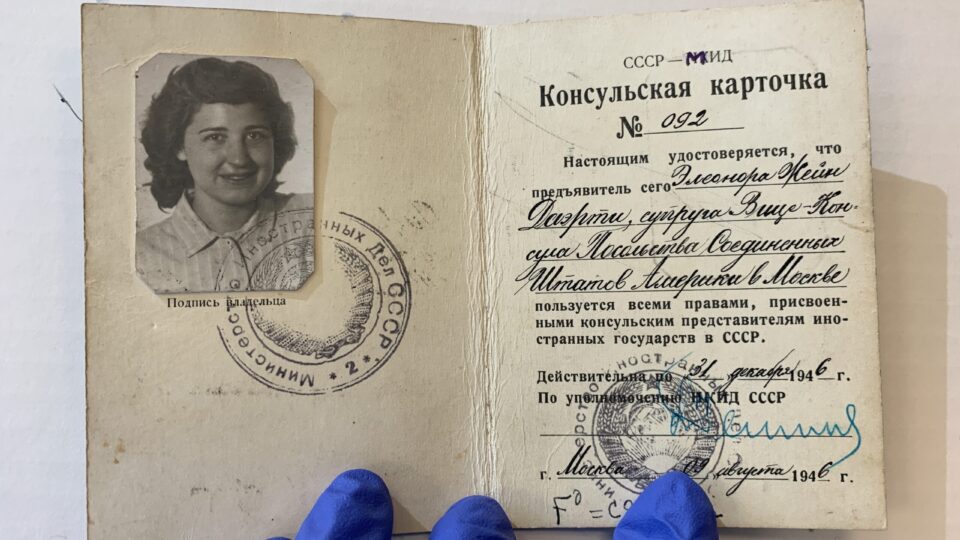 Подпись владельца
Министерство Иностранных Дел СССР * 2 *
СССР — МИД
Консульская карточка
№ 092
Настоящим удостоверяется, что
предъявитель сего Элеонора Джейн
Даэрти, супруга Вице-Кон-
сула Посольства Соединенных
Штатов Америки в Москве
пользуется всеми правами, присвоен-
ными консульским представителям ино-
странных государств в СССР.
Действительна по 31 декабря 1946 г.
По уполномочению НКИД СССР
г. Москва 09 августа 1946 г.